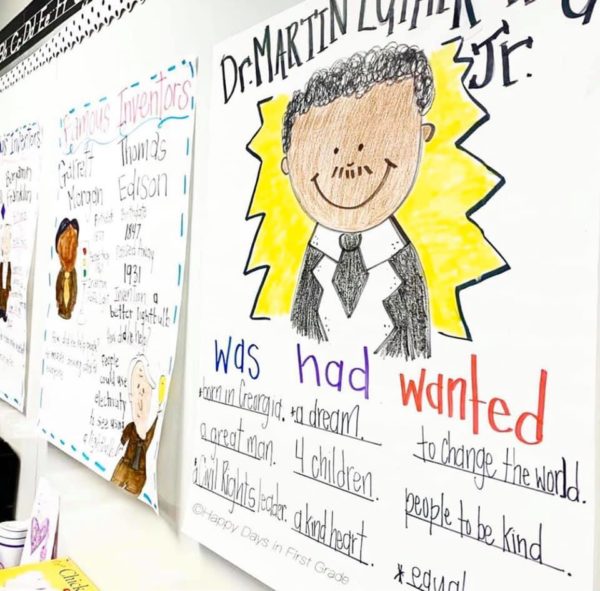 Bb Cc Dd Ee Ff
Inventors
Benjamin
Franklin
Famous Inventors
Garrett
Morgan
Thomas
Edison
1847
1931
Invention a
better lightbulb
How did he help?
people
could use
electricity
to see
Dr. MARTIN LUTHER
Jr.
was
born in Georgia.
a great man.
a Civil Rights leader.
had
*a dream.
4 children.
a kind heart.
wanted
to change the world.
people to be kind.
*equal
©Happy Days in First Grade
Chick